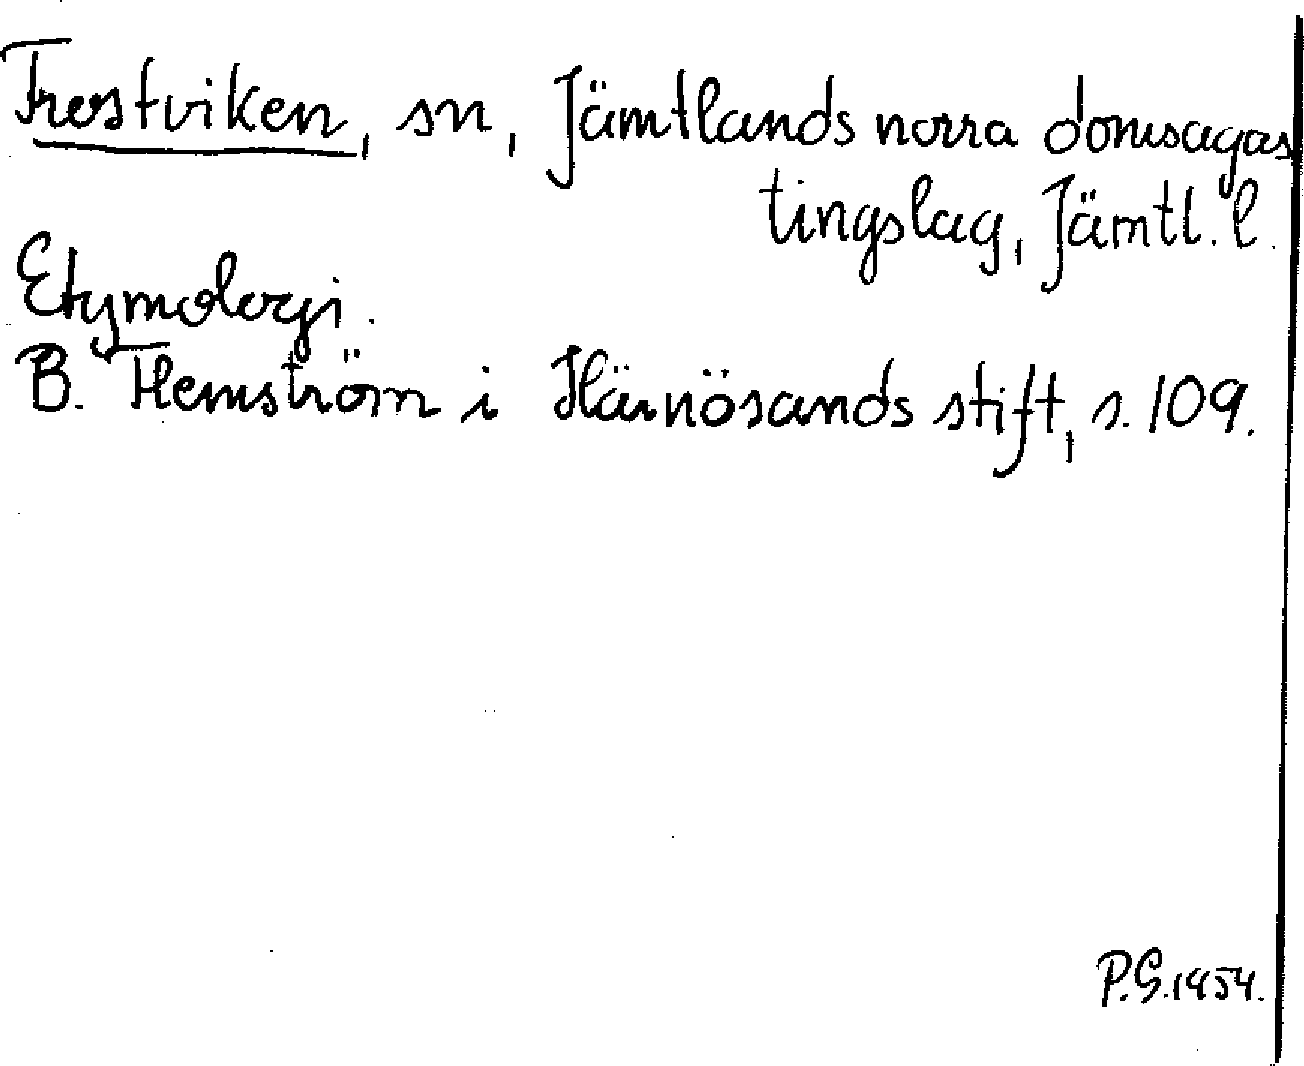 Frostviken, sn, Jämtlands norra domsagas
tingslag, Jämtl. l.
Etymologi.
B. Hemström i Härnösands stift, s. 109.
P.G. 1954.